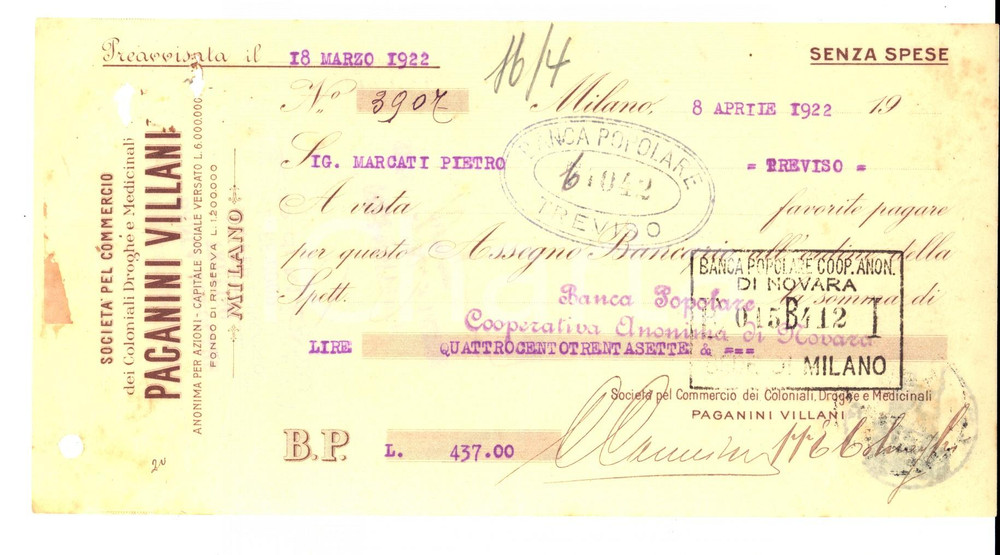 Preavvisata il 18 MARZO 1922
16/4
SENZA SPESE
No 3907 Milano, 8 APRIlE 1922 19
SIG. MARCATI PIETRO = TREVISO =
A vista favorite pagare
per questo Assegno Bancario all'ordine della
Spett. Banca Popolare la somma di
Cooperativa Anonima di Novara
LIRE QUATTROCENTOTRENTASETTE & ===
Società pel Commercio dei Coloniali, Droghe e Medicinali
PAGANINI VILLANI
B.P. L. 437.00
BANCA POPOLARE
TREVISO
BANCA POPOLARE COOP. ANON.
DI NOVARA
015B412
SEDE DI MILANO
SOCIETA' PEL COMMERCIO
dei Coloniali Droghe e Medicinali
PAGANINI VILLANI
ANONIMA PER AZIONI - CAPITALE SOCIALE VERSATO L. 6.000.000
FONDO DI RISERVA L. 1.200.000
MILANO
20